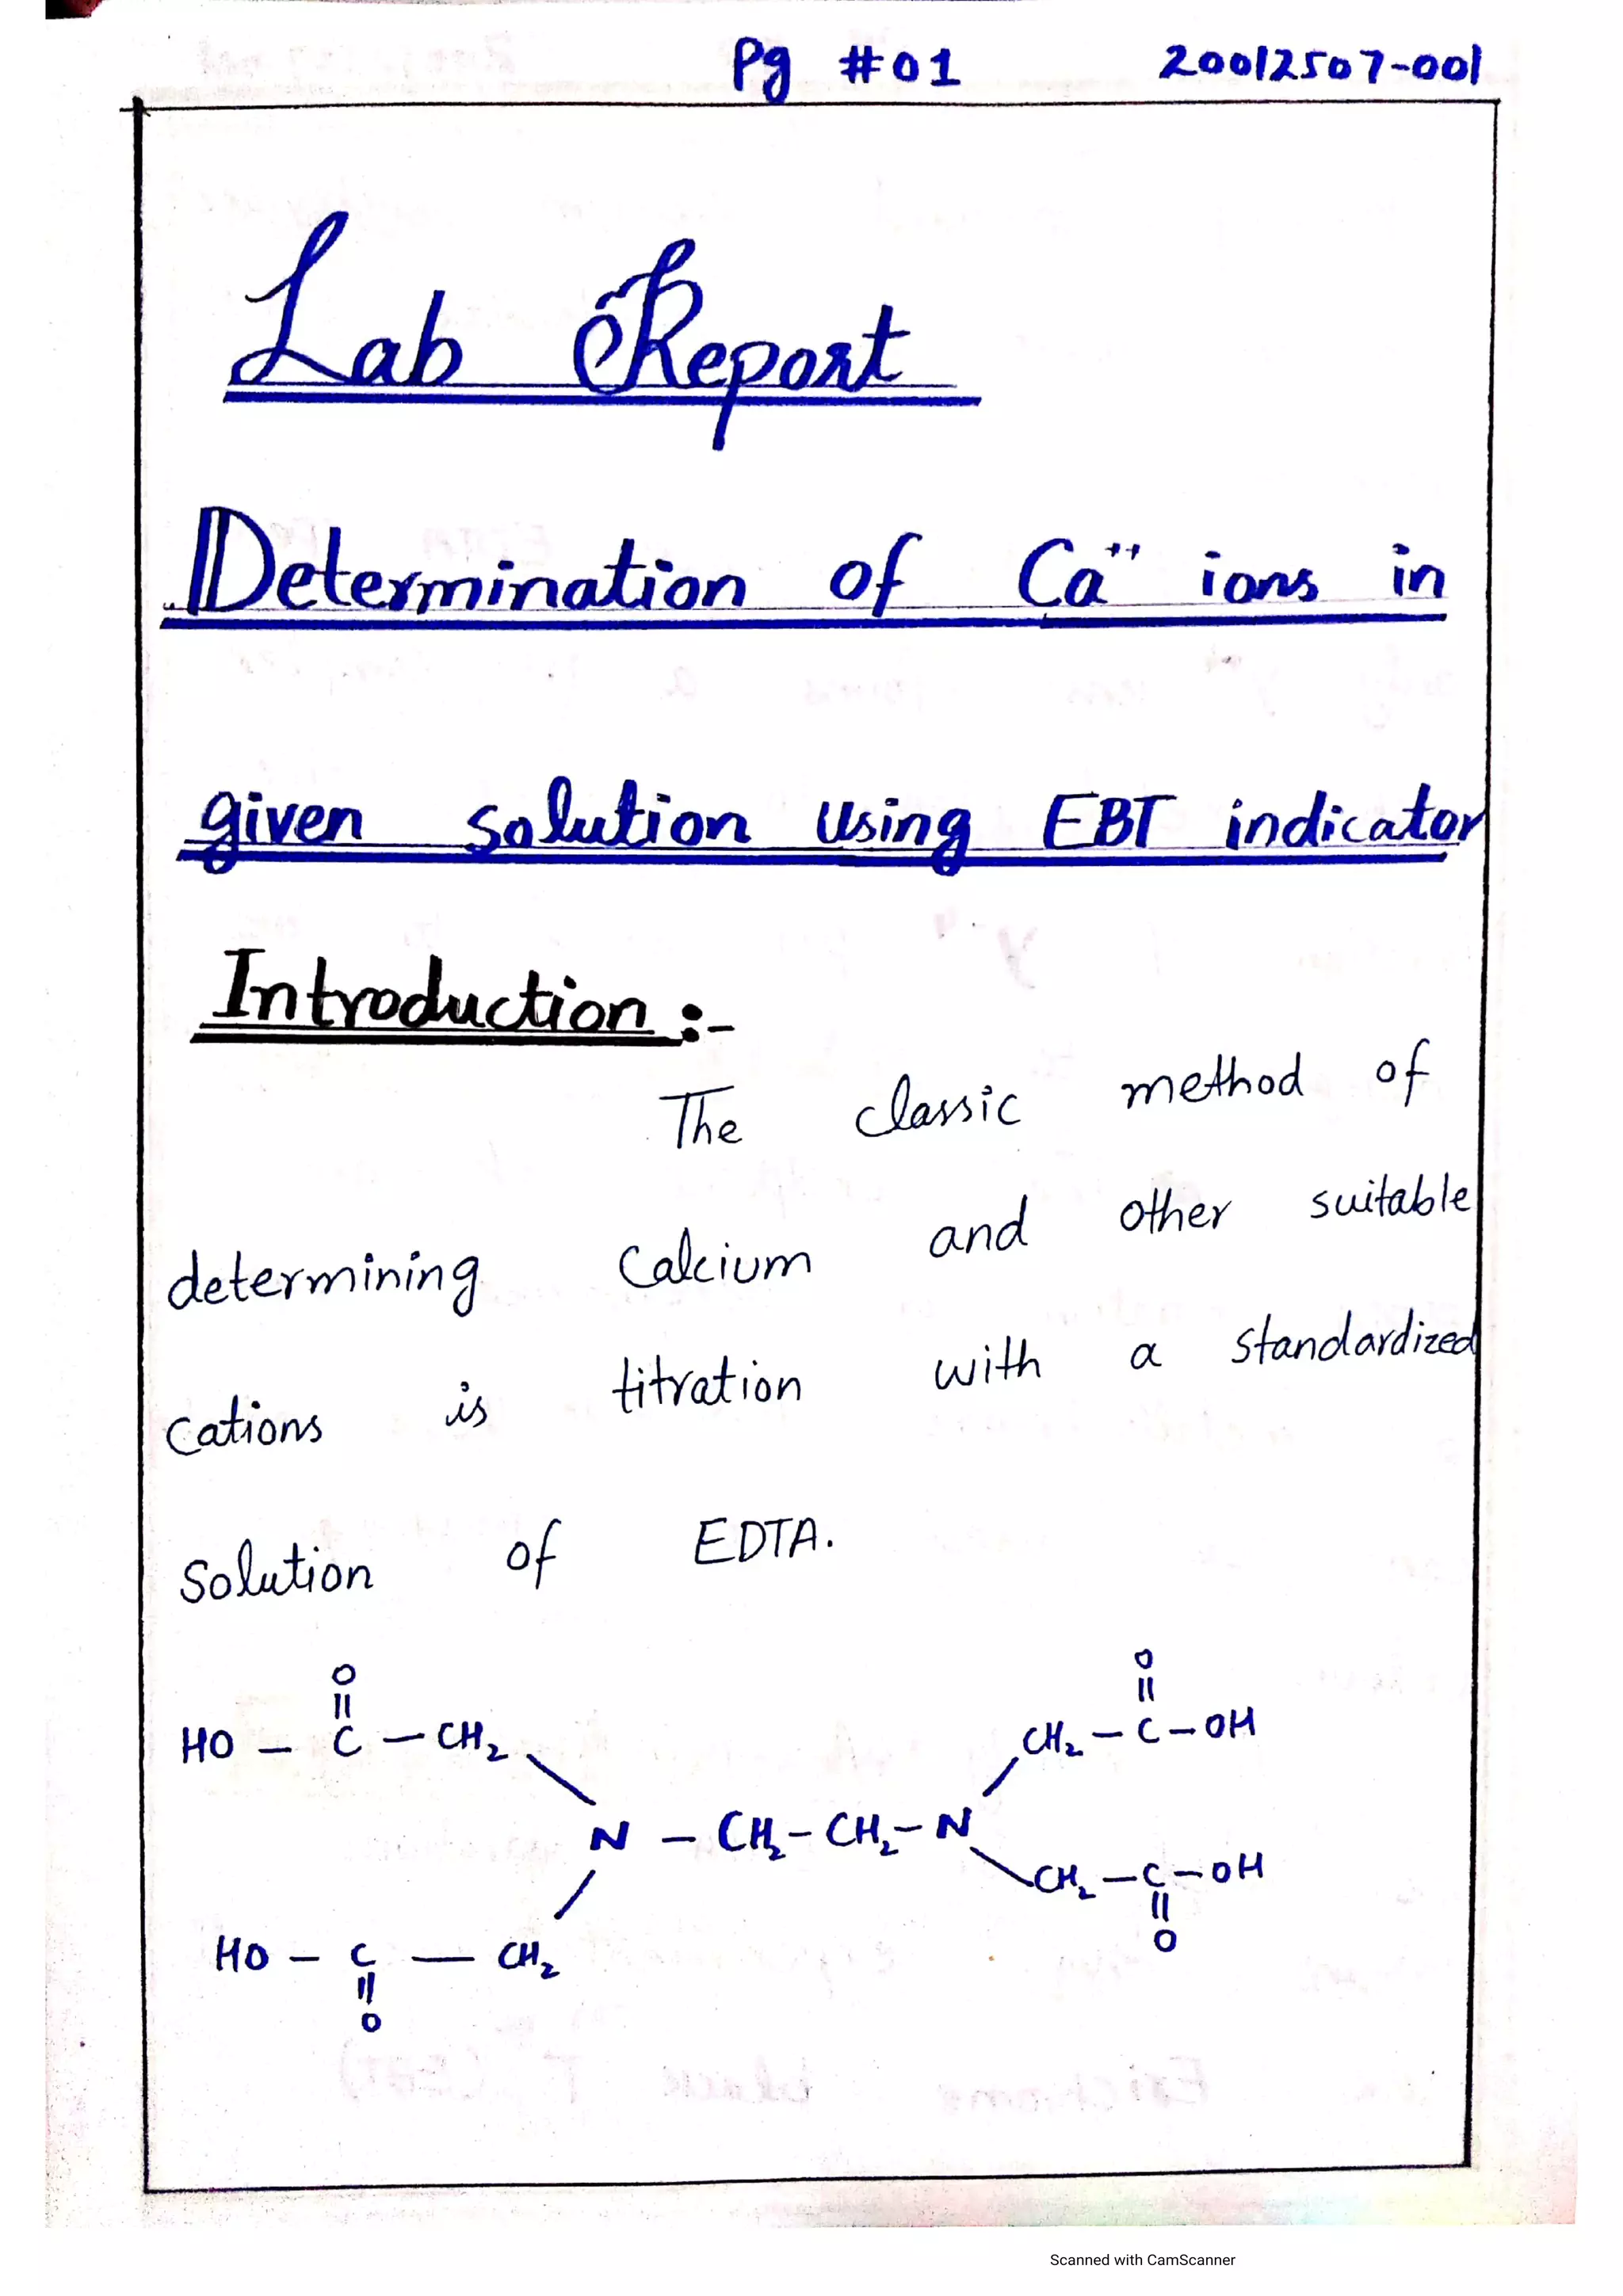 Pg #01 20012507-001
Lab Report
Determination of Ca⁺⁺ ions in
given solution using EBT indicator
Introduction :-
The classic method of
determining Calcium and other suitable
Cations is titration with a standardized
Solution of EDTA.
O O
|| ||
HO – C – CH₂ CH₂ – C – OH
N – CH₂ – CH₂ – N
CH₂ – C – OH
|| 
O
HO – C – CH₂
||
O
Scanned with CamScanner